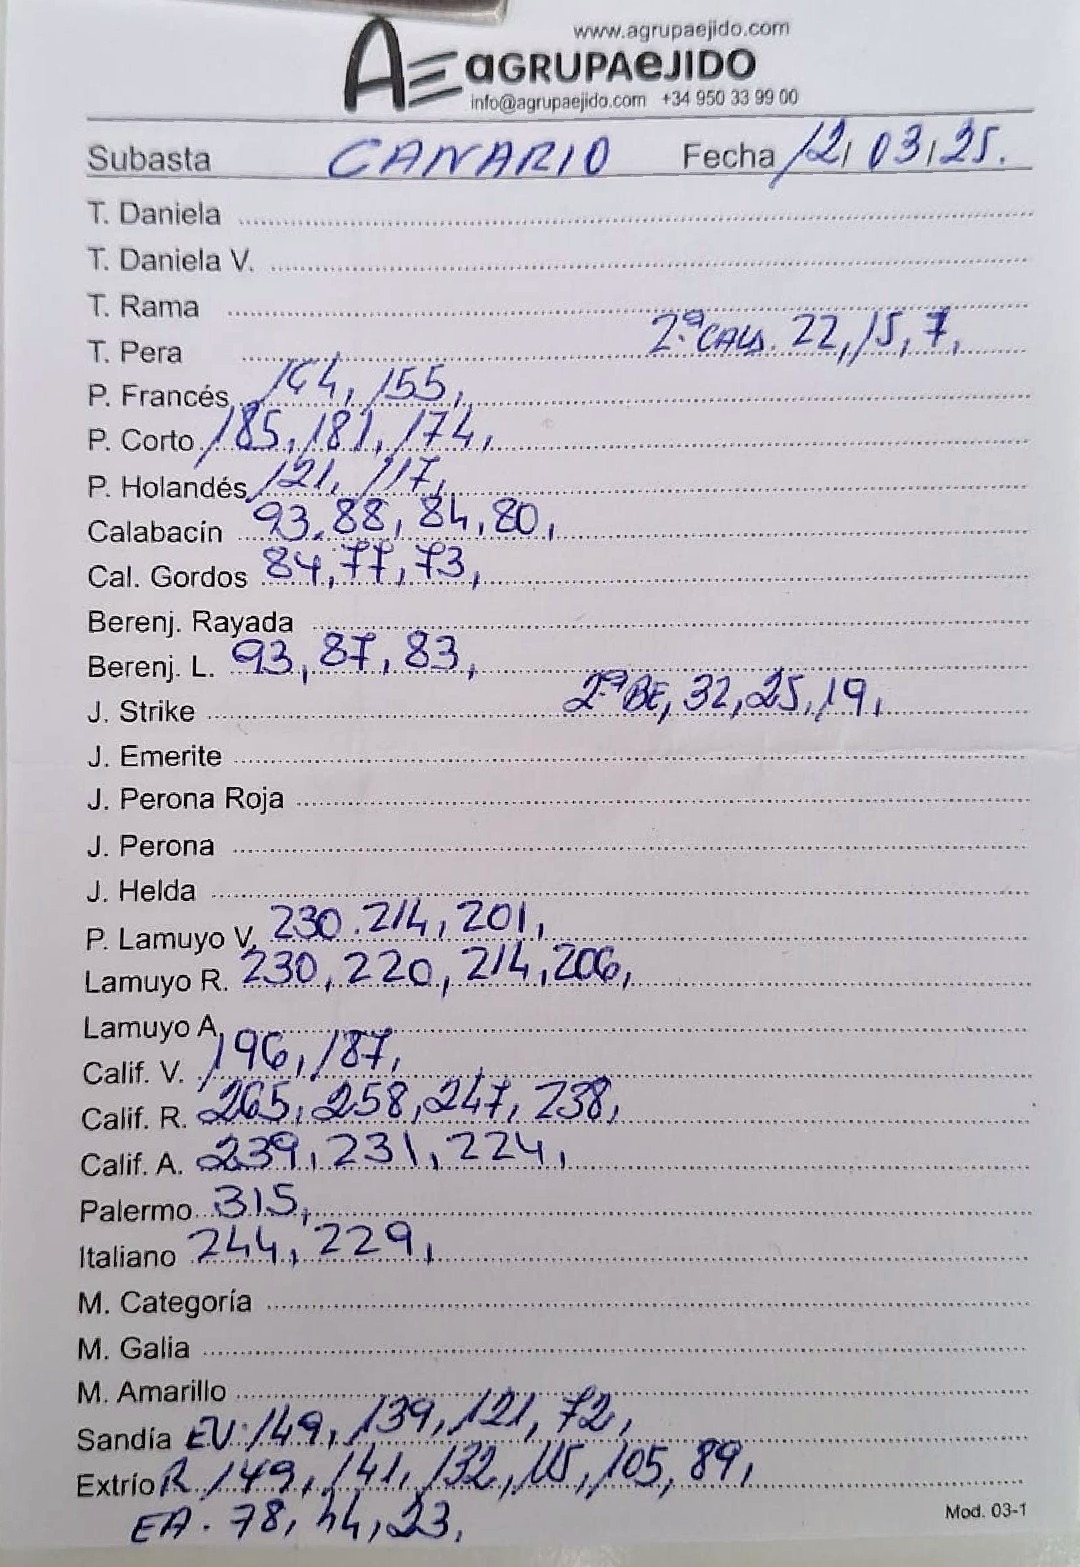 www.agrupaejido.com
AE aGRUPAeJIDO
info@agrupaejido.com +34 950 33 99 00
Subasta CANARIO Fecha 12, 03, 25.
T. Daniela
T. Daniela V.
T. Rama
T. Pera 2ª CALA. 22, 15, 7,
P. Francés 164, 155,
P. Corto 185, 181, 174,
P. Holandés 121, 117,
Calabacín 93, 88, 84, 80,
Cal. Gordos 84, 77, 73,
Berenj. Rayada
Berenj. L. 93, 87, 83,
J. Strike 2ª BE, 32, 25, 19,
J. Emerite
J. Perona Roja
J. Perona
J. Helda
P. Lamuyo V. 230. 214, 201,
Lamuyo R. 230, 220, 214, 206,
Lamuyo A.
Calif. V. 196, 187,
Calif. R. 265, 258, 247, 238,
Calif. A. 239, 231, 224,
Palermo 315,
Italiano 244, 229,
M. Categoría
M. Galia
M. Amarillo
Sandía EV: 149, 139, 121, 72,
Extrío R. 149, 141, 132, 115, 105, 89,
EA. 78, 44, 23,
Mod. 03-1